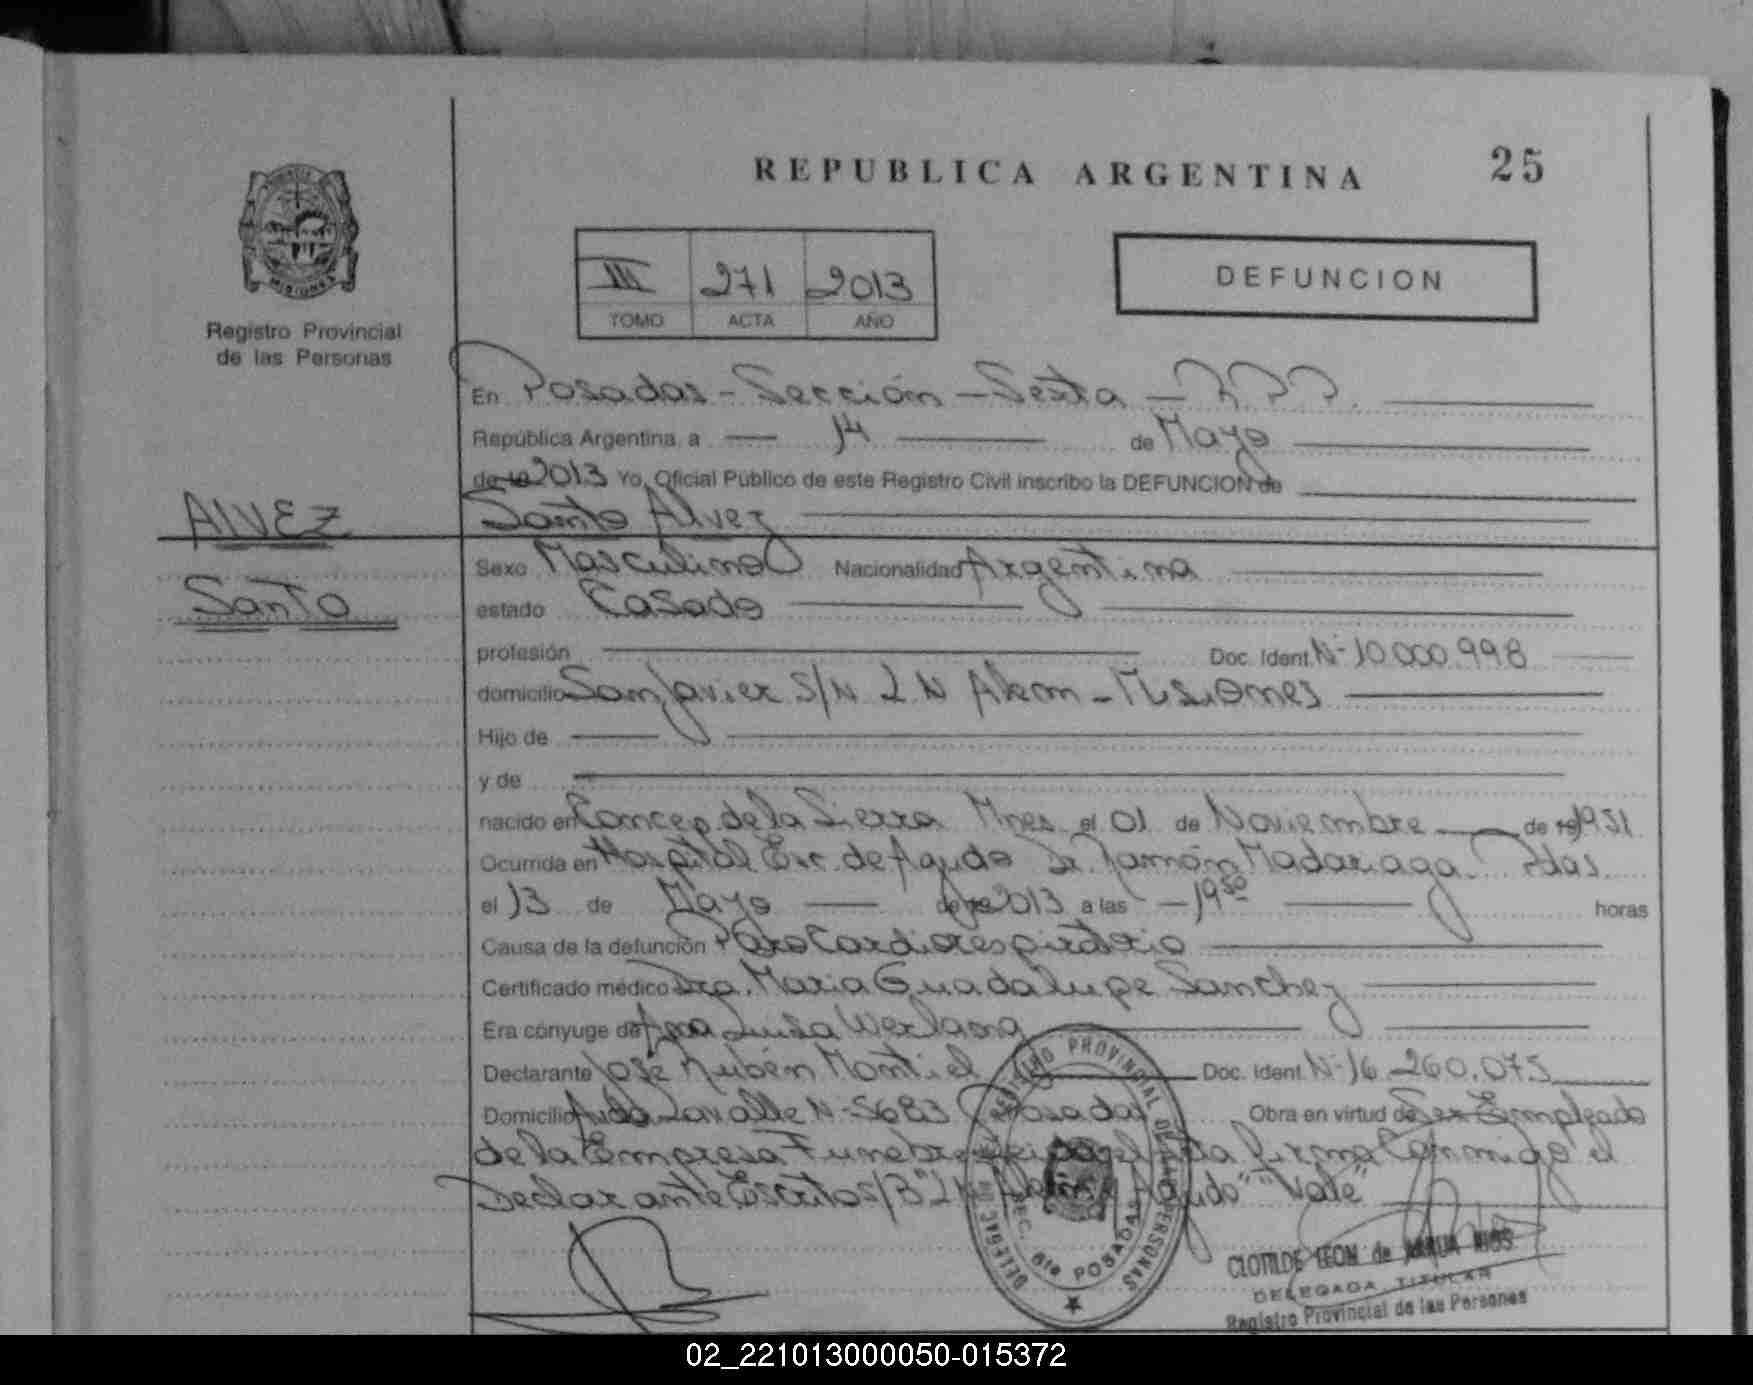 REPUBLICA ARGENTINA 25
MISIONES
Registro Provincial
de las Personas
III 271 2013
TOMO ACTA AÑO
DEFUNCION
En Posadas - Sección - Sexta -
República Argentina, a 14 de Mayo
de 19 2013 Yo, Oficial Público de este Registro Civil inscribo la DEFUNCION de
Santo Alvez
ALVEZ
Santo
Sexo Masculino Nacionalidad Argentina
estado Casado
profesión Doc. Ident. Nº 10.000.998
domicilio San Javier S/N L N Alem - Misiones
Hijo de
y de
nacido en Concep. de la Sierra Mnes. el 01 de Noviembre de 19 1951
Ocurrida en Hospital Esc. de Agudo Dr. Ramón Madariaga. Pdas.
el 13 de Mayo de 19 2013 a las 19 50 horas
Causa de la defunción Paro Cardiorespiratorio
Certificado médico Dra. Maria Guadalupe Sanchez
Era cónyuge de Ana Luisa Werlang
Declarante José Rubén Montiel Doc. Ident. Nº 16.260.075
Domicilio Avda Lavalle Nº 5683 Posadas Obra en virtud de Ser Empleado
de la Empresa Funebre firma Conmigo el
Declarante Escrito S/B "L N Alem "Agudo" "Vale"
REGISTRO PROVINCIAL DE LAS PERSONAS
DELEGAC
SEC. 6ta POSADAS
CLOTILDE LEON de
DELEGADA TITULAR
Registro Provincial de las Personas
02_221013000050-015372